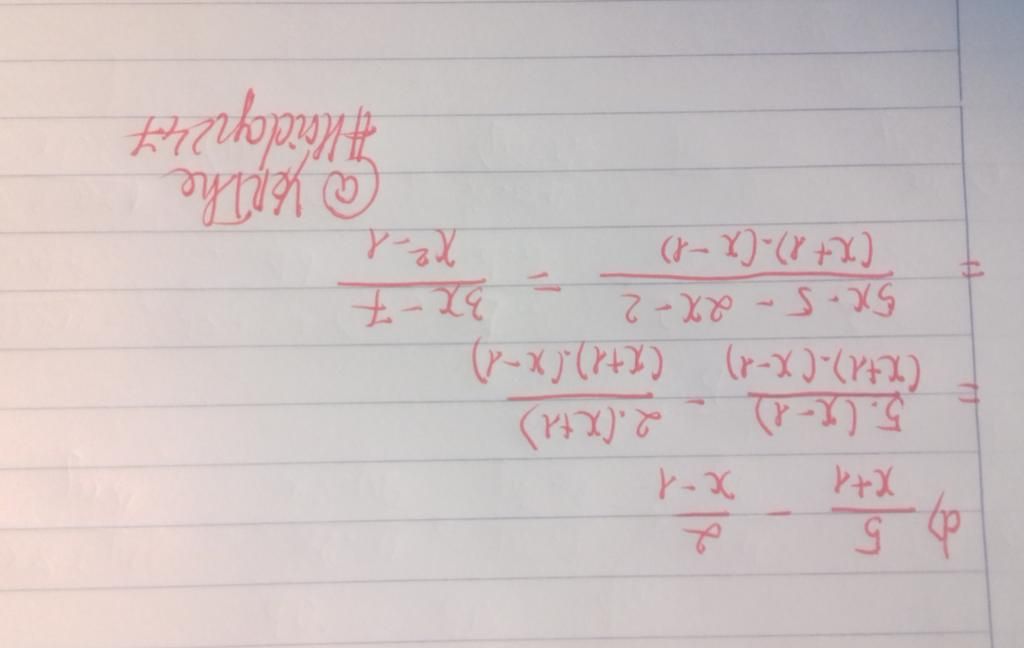 d) 5/(x+1) - 2/(x-1)
= 5.(x-1)/(x+1).(x-1) - 2.(x+1)/(x+1).(x-1)
= 5x-5-2x-2/(x+1).(x-1) = 3x-7/x²-1
#Hoidap247